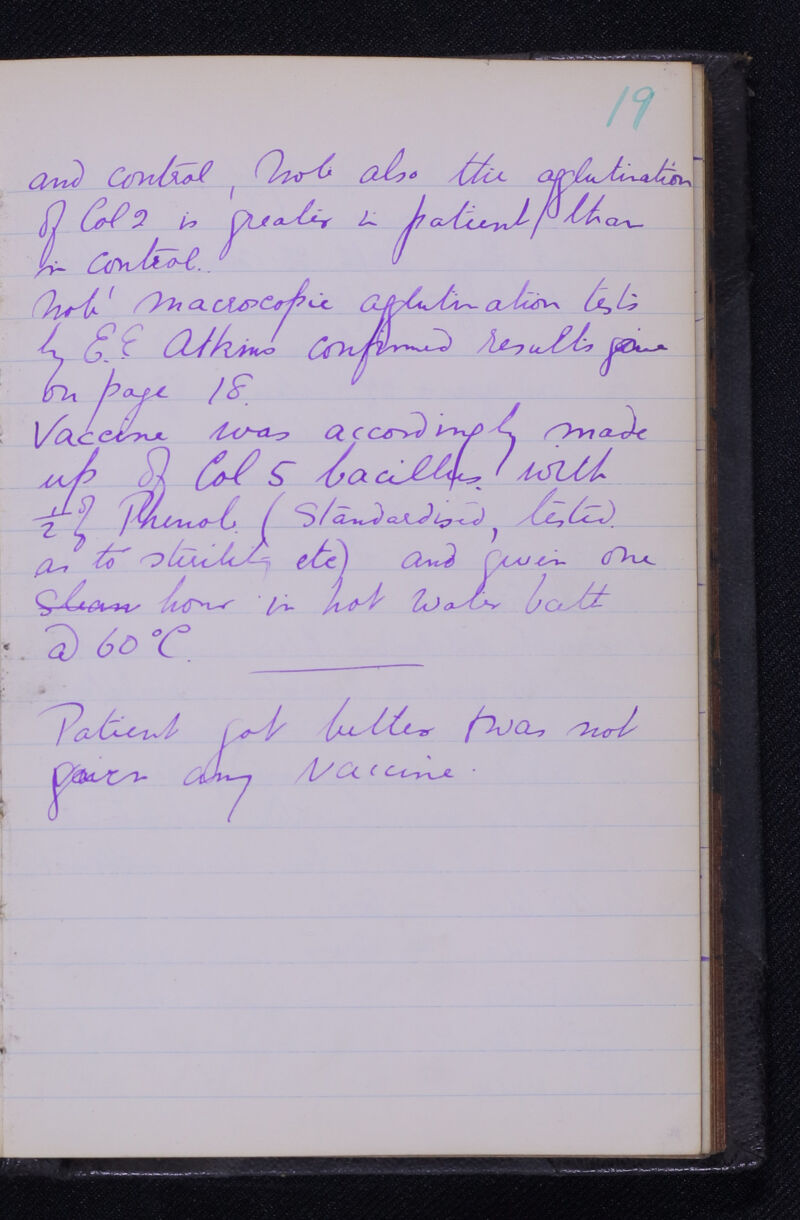 19
and control, Note also the agglutination
of Col 2 is greater in patient than
in control.
Note macroscopic agglutination tests
by E.E Atkins confirmed results give
on page 18.
Vaccine was accordingly made
up of Col 5 bacillus. with
½% Phenol. (Standardised, tested
as to sterility etc) and given one
hour in hot water bath
@ 60°C.
Patient got better & was not
given any vaccine.